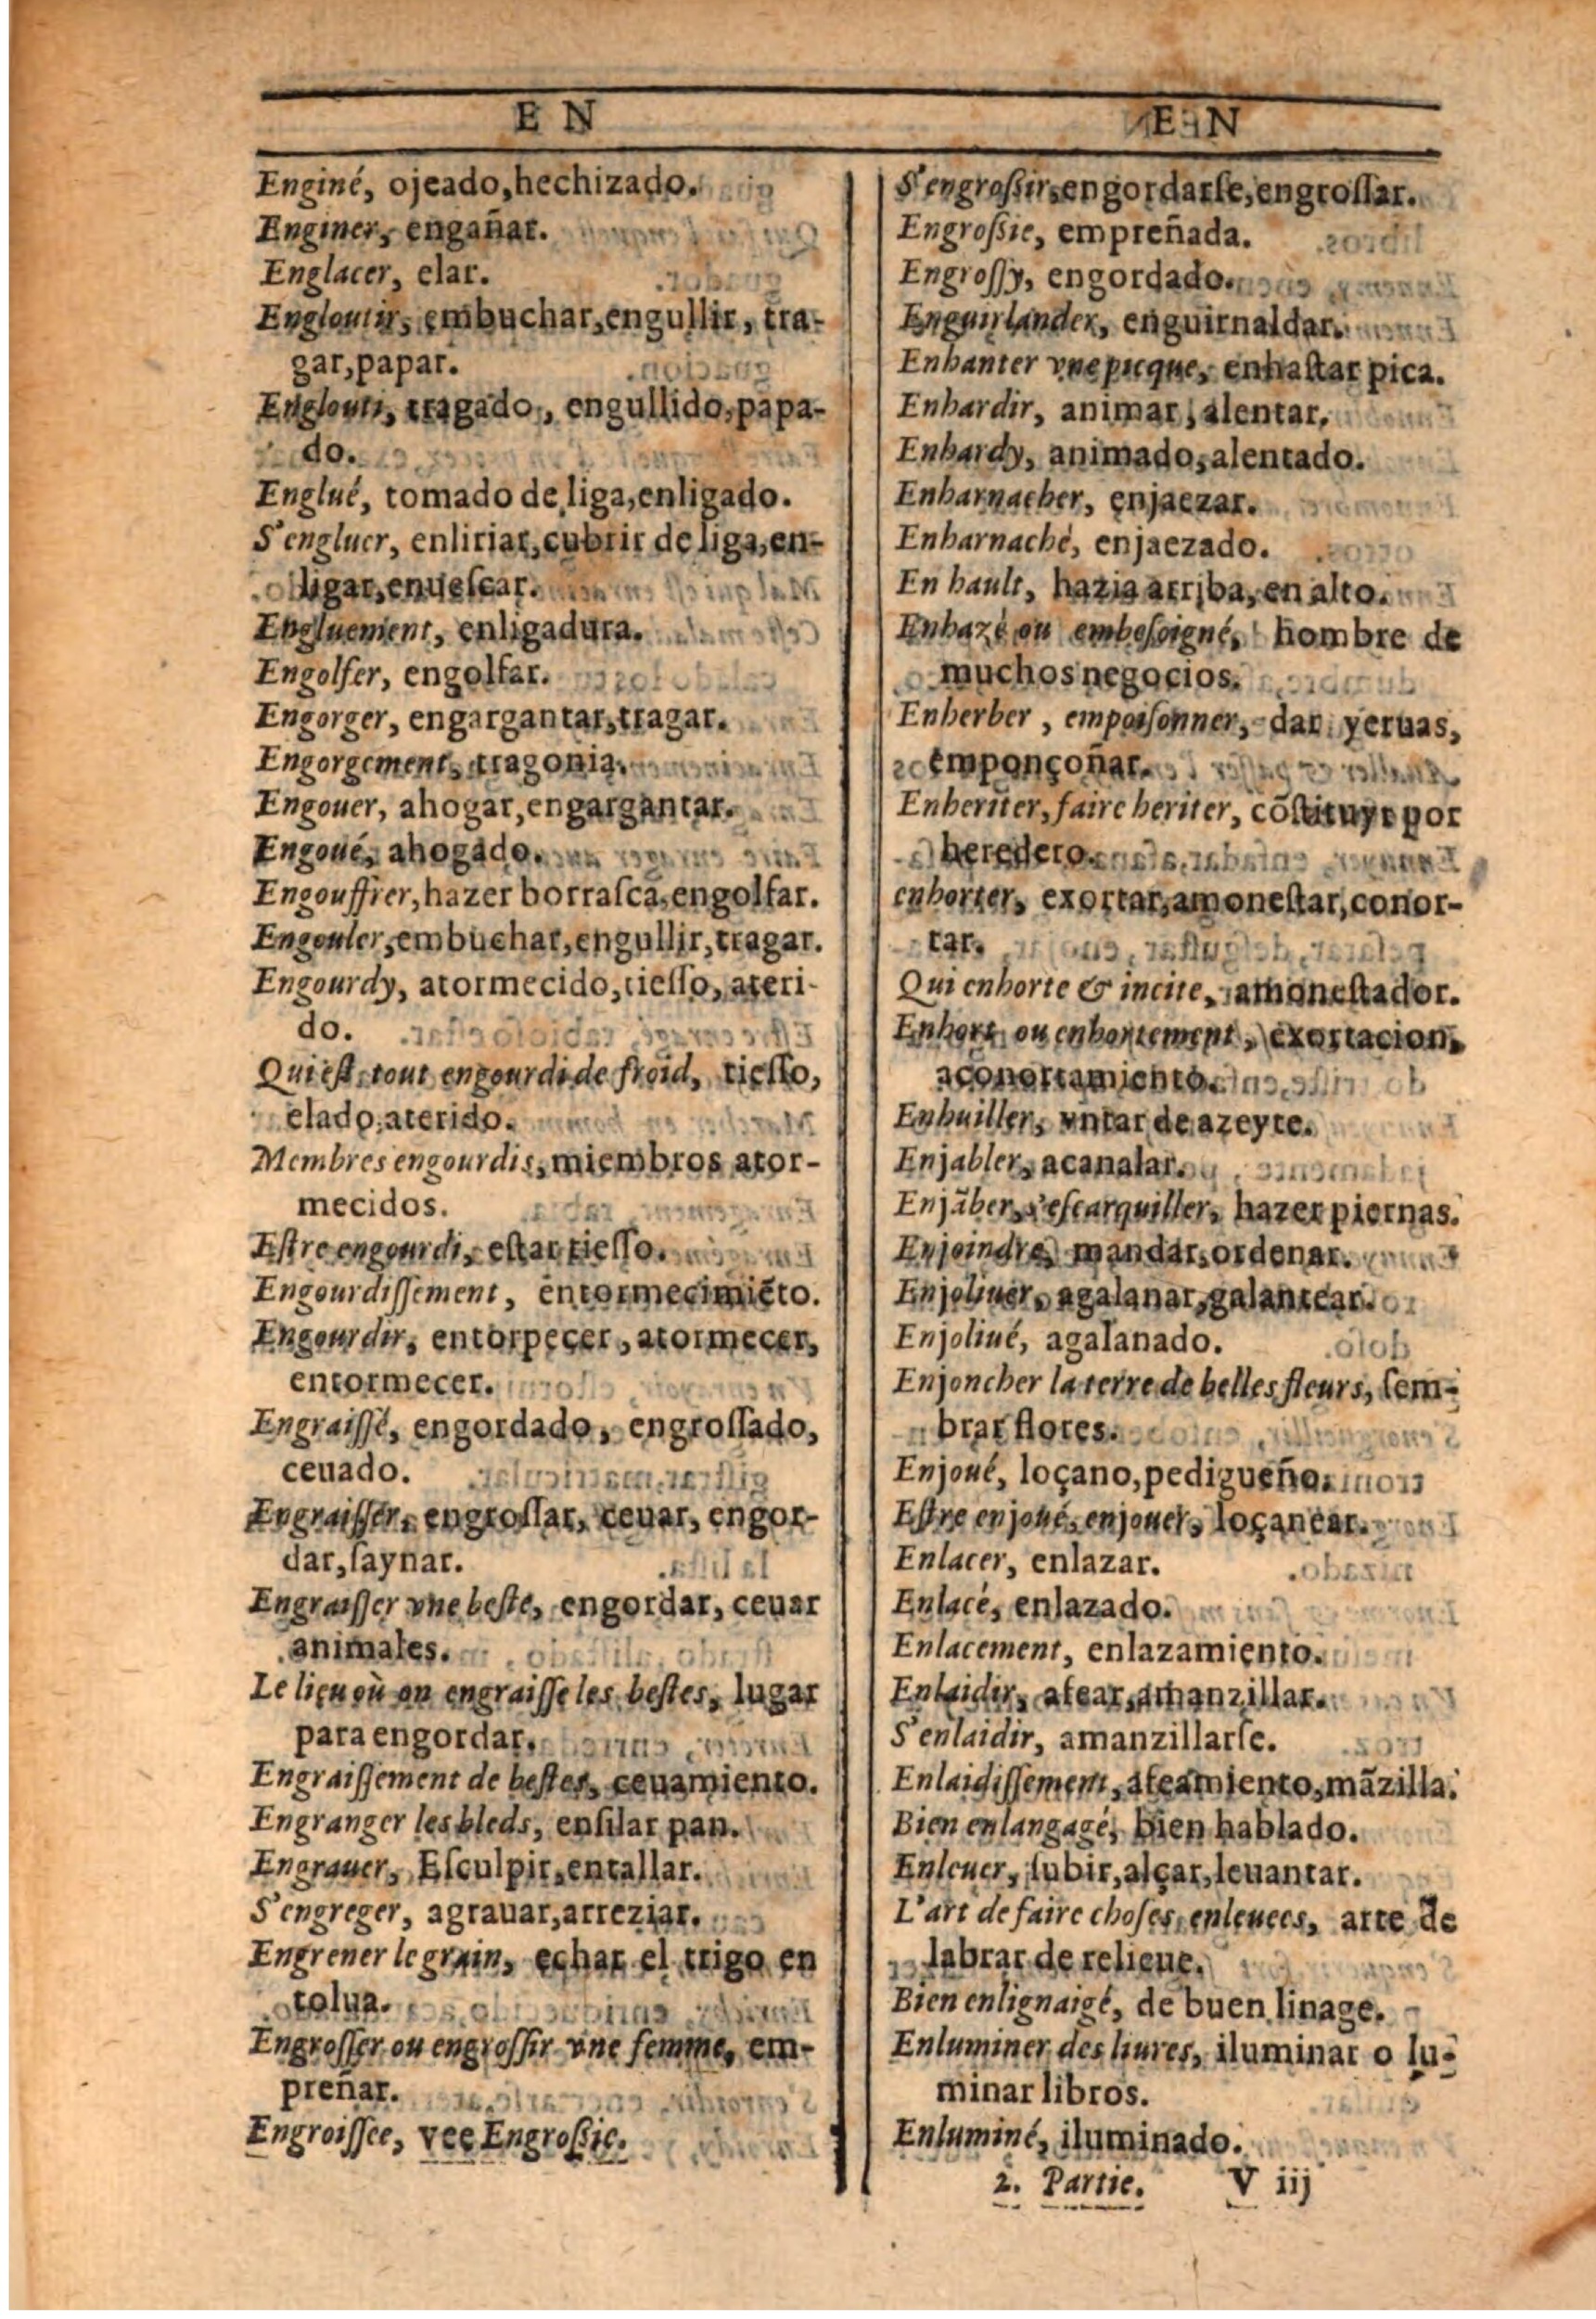 E N
Enginé, ojeado,hechizado.
Enginer, engañar.
Englacer, elar.
Engloutir, embuchar,engullir, tra-
gar,papar.
Englouti, tragado, engullido,papa-
do.
Englué, tomado de liga,enligado.
S'engluer, enliriar,cubrir de liga,en-
ligar,enueſcar.
Engluement, enligadura.
Engolfer, engolfar.
Engorger, engargantar,tragar.
Engorgement, tragonia.
Engouer, ahogar,engargantar.
Engoué, ahogado.
Engouffrer,hazer borraſca,engolfar.
Engouler,embuchar,engullir,tragar.
Engourdy, atormecido,tieſſo, ateri-
do.
Qui eſt tout engourdi de froid, tieſſo,
elado,aterido.
Membres engourdis,miembros ator-
mecidos.
Eſtre engourdi, eſtar tieſſo.
Engourdiſſement, entormecimiẽto.
Engourdir, entorpeçer, atormecer,
entormecer.
Engraiſſé, engordado, engroſſado,
ceuado.
Engraiſſer, engroſſar, ceuar, engor-
dar,ſaynar.
Engraiſſer vne beſte, engordar, ceuar
animales.
Le lieu où on engraiſſe les beſtes, lugar
para engordar.
Engraiſſement de beſtes, ceuamiento.
Engranger les bleds, enſilar pan.
Engrauer, Eſculpir,entallar.
S'engreger, agrauar,arreziar.
Engrener le grain, echar el trigo en
tolua.
Engroſſer ou engroſſir vne femme, em-
preñar.
Engroiſſee, vee Engroßie.
E N
S'engroßir,engordarſe,engroſſar.
Engroßie, empreñada.
Engroſſy, engordado.
Enguirlander, enguirnaldar.
Enhanter vne picque, enhaſtar pica.
Enhardir, animar, alentar.
Enhardy, animado,alentado.
Enharnacher, enjaezar.
Enharnaché, enjaezado.
En hault, hazia arriba, en alto.
Enhazé ou embeſoigné, hombre de
muchos negocios.
Enherber, empoiſonner, dar yeruas,
emponçoñar.
Enheriter, faire heriter, cõſtituyr por
heredero.
enhorter, exortar,amoneſtar,conor-
tar.
Qui enhorte & incite, amoneſtador.
Enhort ou enhortement, exortacion,
aconortamiento.
Enhuiller, vntar de azeyte.
Enjabler, acanalar.
Enjãber, s'eſcarquiller, hazer piernas.
Enjoindre, mandar,ordenar.
Enjoliuer, agalanar,galantear.
Enjoliué, agalanado.
Enjoncher la terre de belles fleurs, ſem-
brar flores.
Enjoué, loçano,pedigueño.
Eſtre enjoué,enjouer, loçanear.
Enlacer, enlazar.
Enlacé, enlazado.
Enlacement, enlazamiento.
Enlaidir, afear,amanzillar.
S'enlaidir, amanzillarſe.
Enlaidiſſement, afeamiento,mãzilla.
Bien enlangagé, bien hablado.
Enleuer, ſubir,alçar,leuantar.
L'art de faire choſes enleuees, arte de
labrar de relieue.
Bien enlignaigé, de buen linage.
Enluminer des liures, iluminar o lu-
minar libros.
Enluminé, iluminado.
2. Partie. V iij